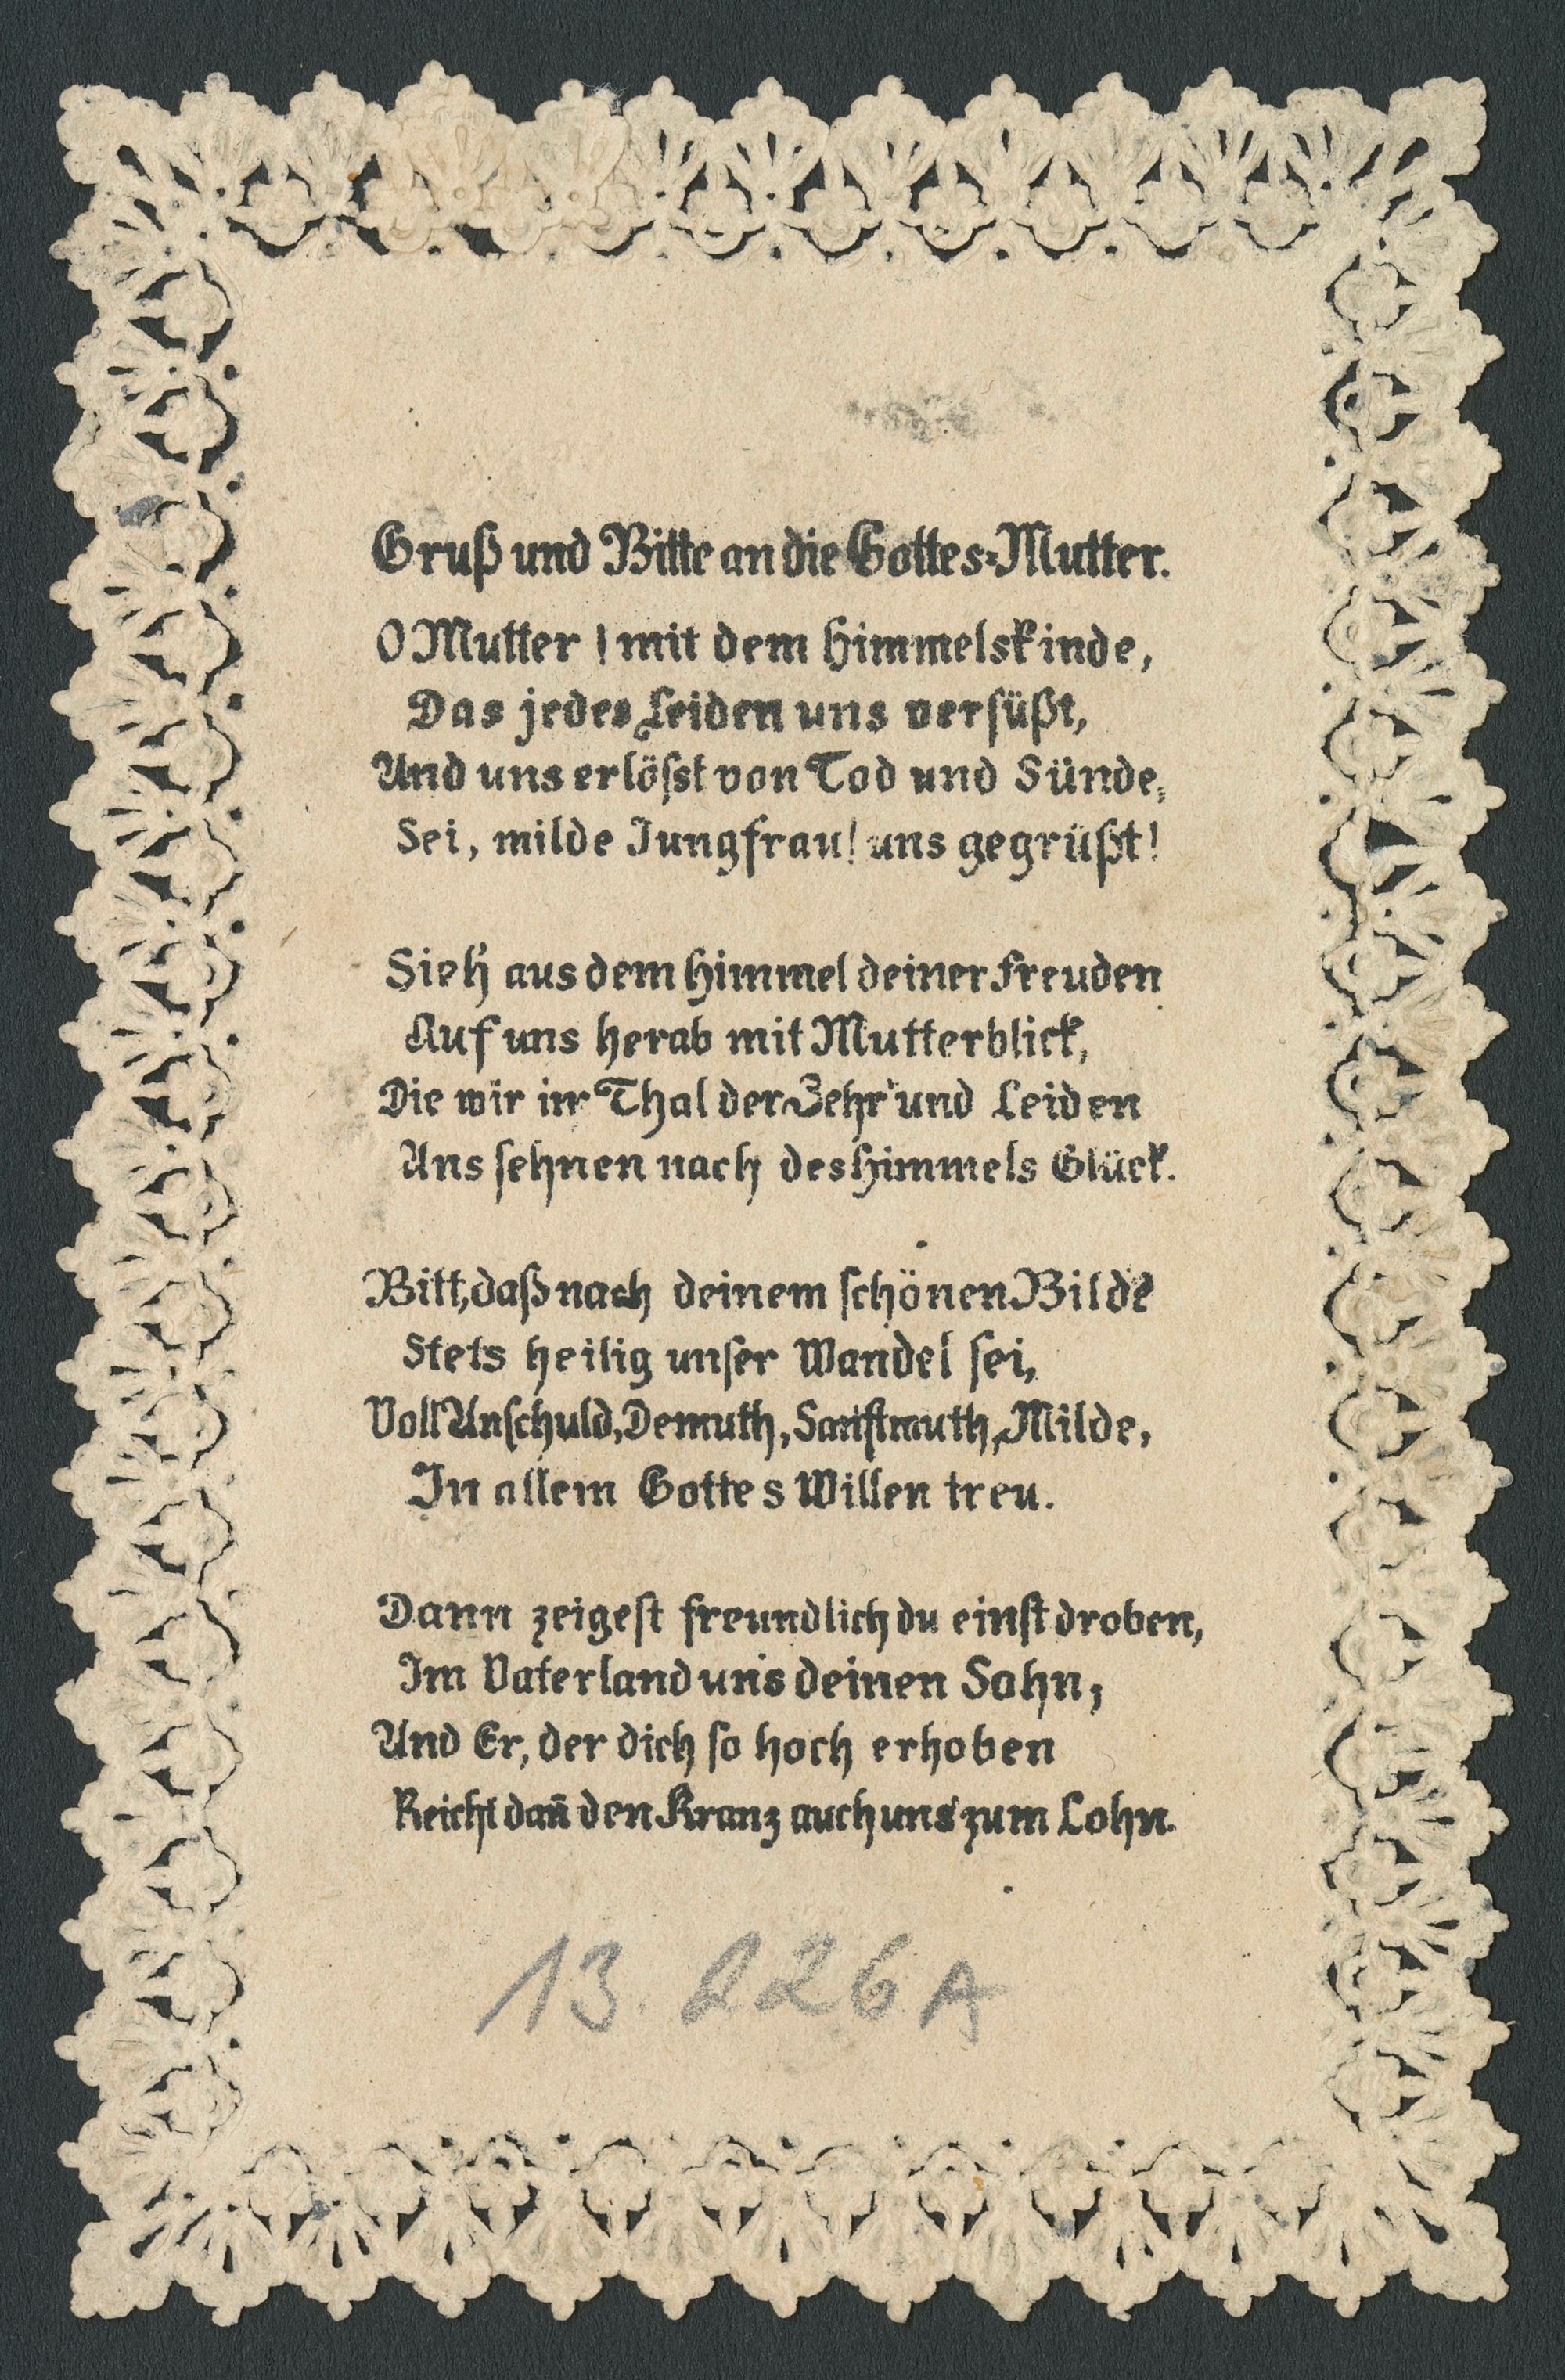 Gruß und Bitte an die Gottes-Mutter.
O Mutter! mit dem Himmelskinde,
Das jedes Leiden uns versüßt,
Und uns erlösst von Tod und Sünde,
Sei, milde Jungfrau! uns gegrüßt!
Sieh' aus dem Himmel deiner Freuden
Auf uns herab mit Mutterblick,
Die wir im Thal der Zehr' und Leiden
Uns sehnen nach des Himmels Glück.
Bitt, daß nach deinem schönen Bilde
Stets heilig unser Wandel sei,
Voll Unschuld, Demuth, Sanftmuth, Milde,
In allem Gottes Willen treu.
Dann zeigest freundlich du einst droben,
Im Vaterland uns deinen Sohn,
Und Er, der dich so hoch erhoben
Reicht dan̄ den Kranz auch uns zum Lohn.
13. 226 A